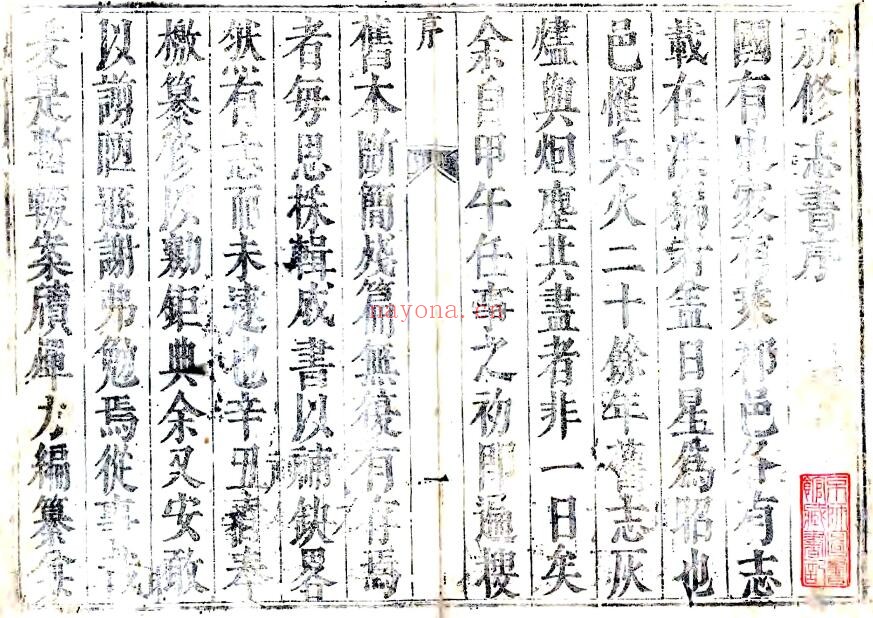 新修志書序
國有史家有乘郡邑各有志
載在洪編財盖日星為昭也
邑罹兵火二十餘年舊志灰
燼與烟塵共盡者非一日矣
余自甲午任古之初即遍搜
序
一
舊本斷簡殘篇無復有存焉
者每思採輯成書以補缺畧
然有志而未逮也辛丑春奉
檄纂修以勷鉅典余又安敢
以謭陋遜謝弗勉焉從事哉
於是暫輟案牘殫力編纂僉
nayona.cn